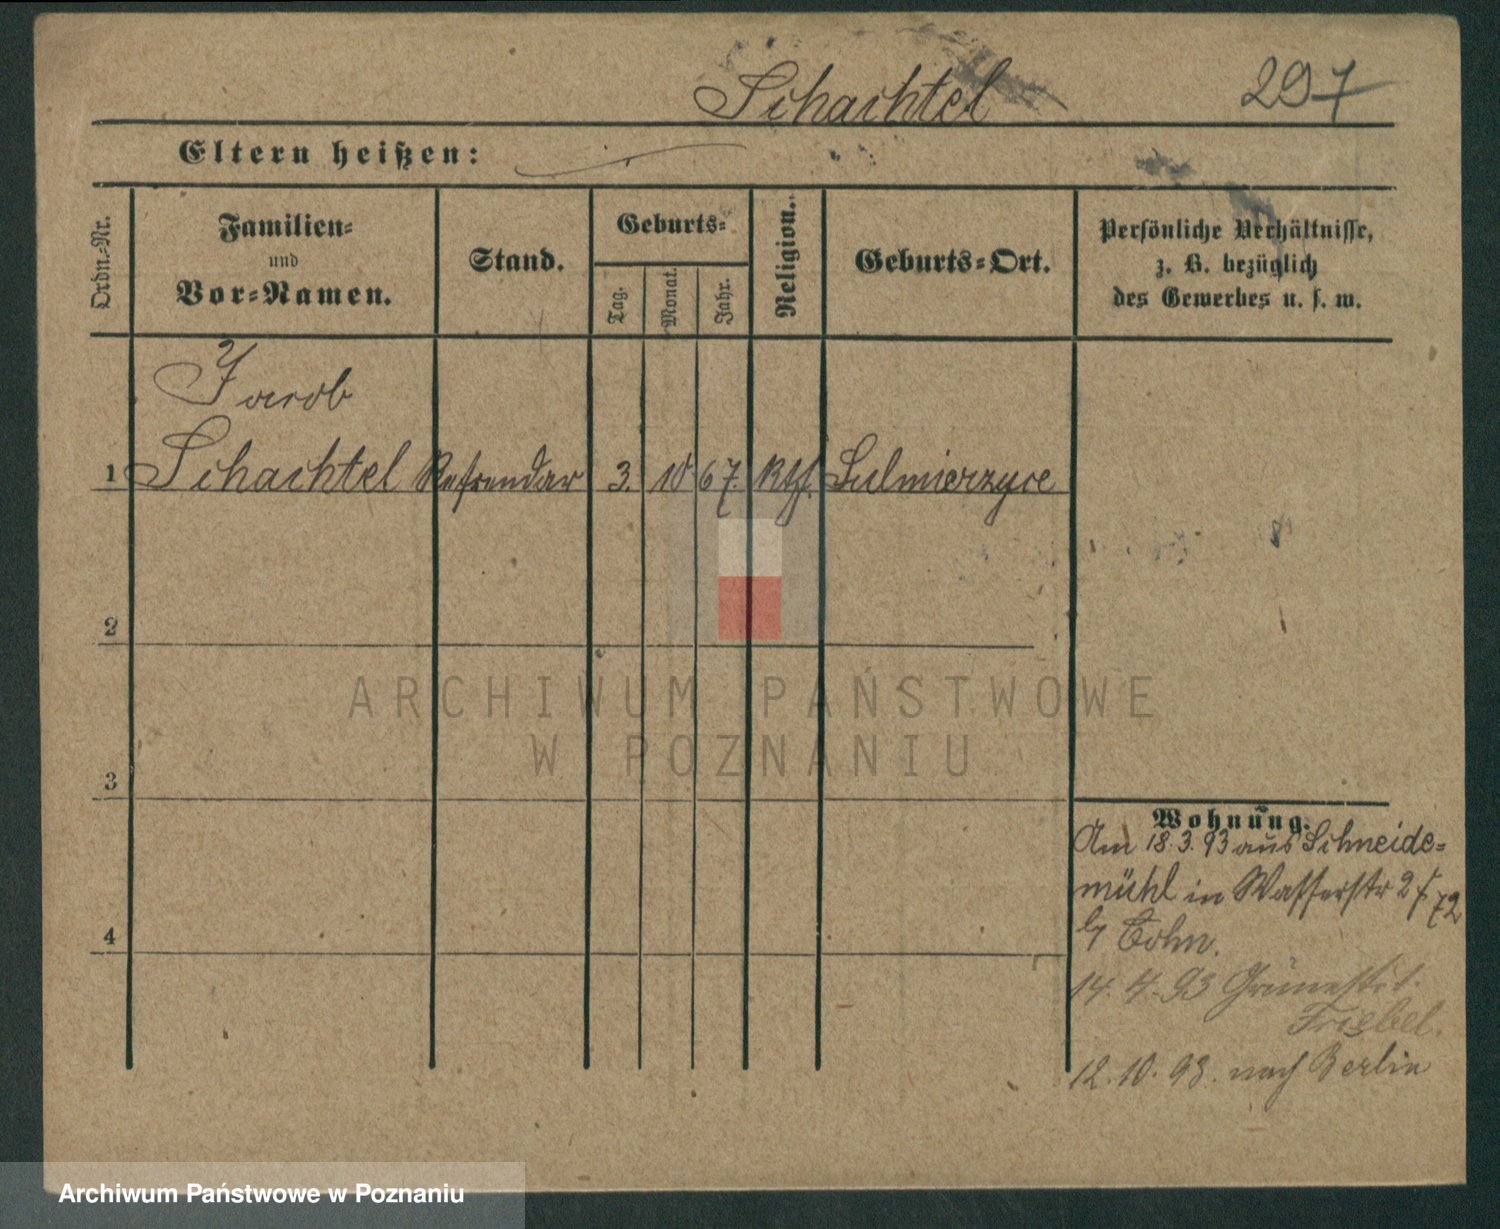 Schachtel
297
Eltern heißen:
Ordn.-Nr.
Familien-
und
Vor-Namen.
Stand.
Geburts-
Tag.
Monat.
Jahr.
Religion.
Geburts-Ort.
Persönliche Verhältnisse,
z. B. bezüglich
des Gewerbes u. s. w.
Jacob
1 Schachtel Refrendar 3. 10 67. Sulmierzyce
2
3
4
Wohnung.
Am 18.3.93 aus Schneide-
mühl in Wasserstr 2
b/ Cohn.
14.4.93 Grünestr.
Friebel.
12.10.93. nach Berlin
ARCHIWUM PAŃSTWOWE
W POZNANIU
Archiwum Państwowe w Poznaniu